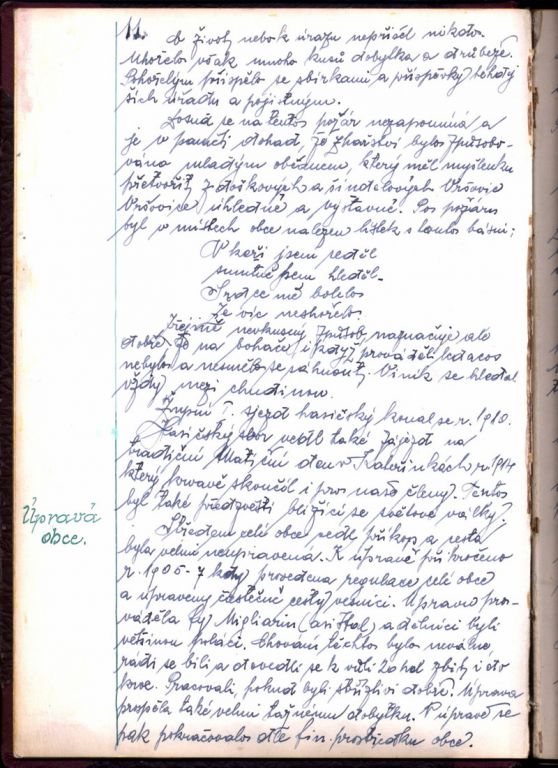 11.
o život nebo k úrazu nepřišel nikdo.
Uhořelo však mnoho kusů dobytka a drůbeže.
Pohořelým přispělo se sbírkami a příspěvky tehdej-
ších úřadů a pojistným.
Dosud se na tento požár nezapomíná a
je v paměti dohad, že žhářství bylo způsobo-
váno mladým občanem, který měl myšlenku
přetvořit z doškových a šindelových Vršovic
Vršovice úhledné a výstavné. Po požáru
byl v místech obce nalezen lístek s touto básní:
V keři jsem seděl
smutně jsem hleděl-
Srdce mě bolelo
že víc neshořelo.
Zřejmě nevkusný způsob naznačuje ale
dobře, že na boháče i když prováděli ledacos
nebylo a nesmělo se sáhnout. Viník se hledal
vždy mezi chudinou.
Župní I. sjezd hasičský konal se r. 1910.
Hasičský sbor vedl také zájezd na
tradiční Matiční den v Kateřinkách r. 1914
který krvavě skončil i pro naše členy. Tento
byl také předzvěstí blížící se světové války.
Úprava
obce.
Středem celé obce vedl příkop a cesta
byla velmi neupravená. K úpravě přikročeno
r. 1905-7 kdy provedena regulace celé obce
a upraveny částečně cesty vesnicí. Úpravu pro-
váděla fy Migliarin (asi Ital) a dělníci byli
většinou Poláci. Chování těchto bylo neválné,
rádi se bili a dovedli se k vůli zahol zbít i do
krve. Pracovali, pokud byli střízliví dobře. Úprava
prospěla také velmi tažnému dobytku. V úpravě se
pak pokračovalo dle fin. prostředků obce.